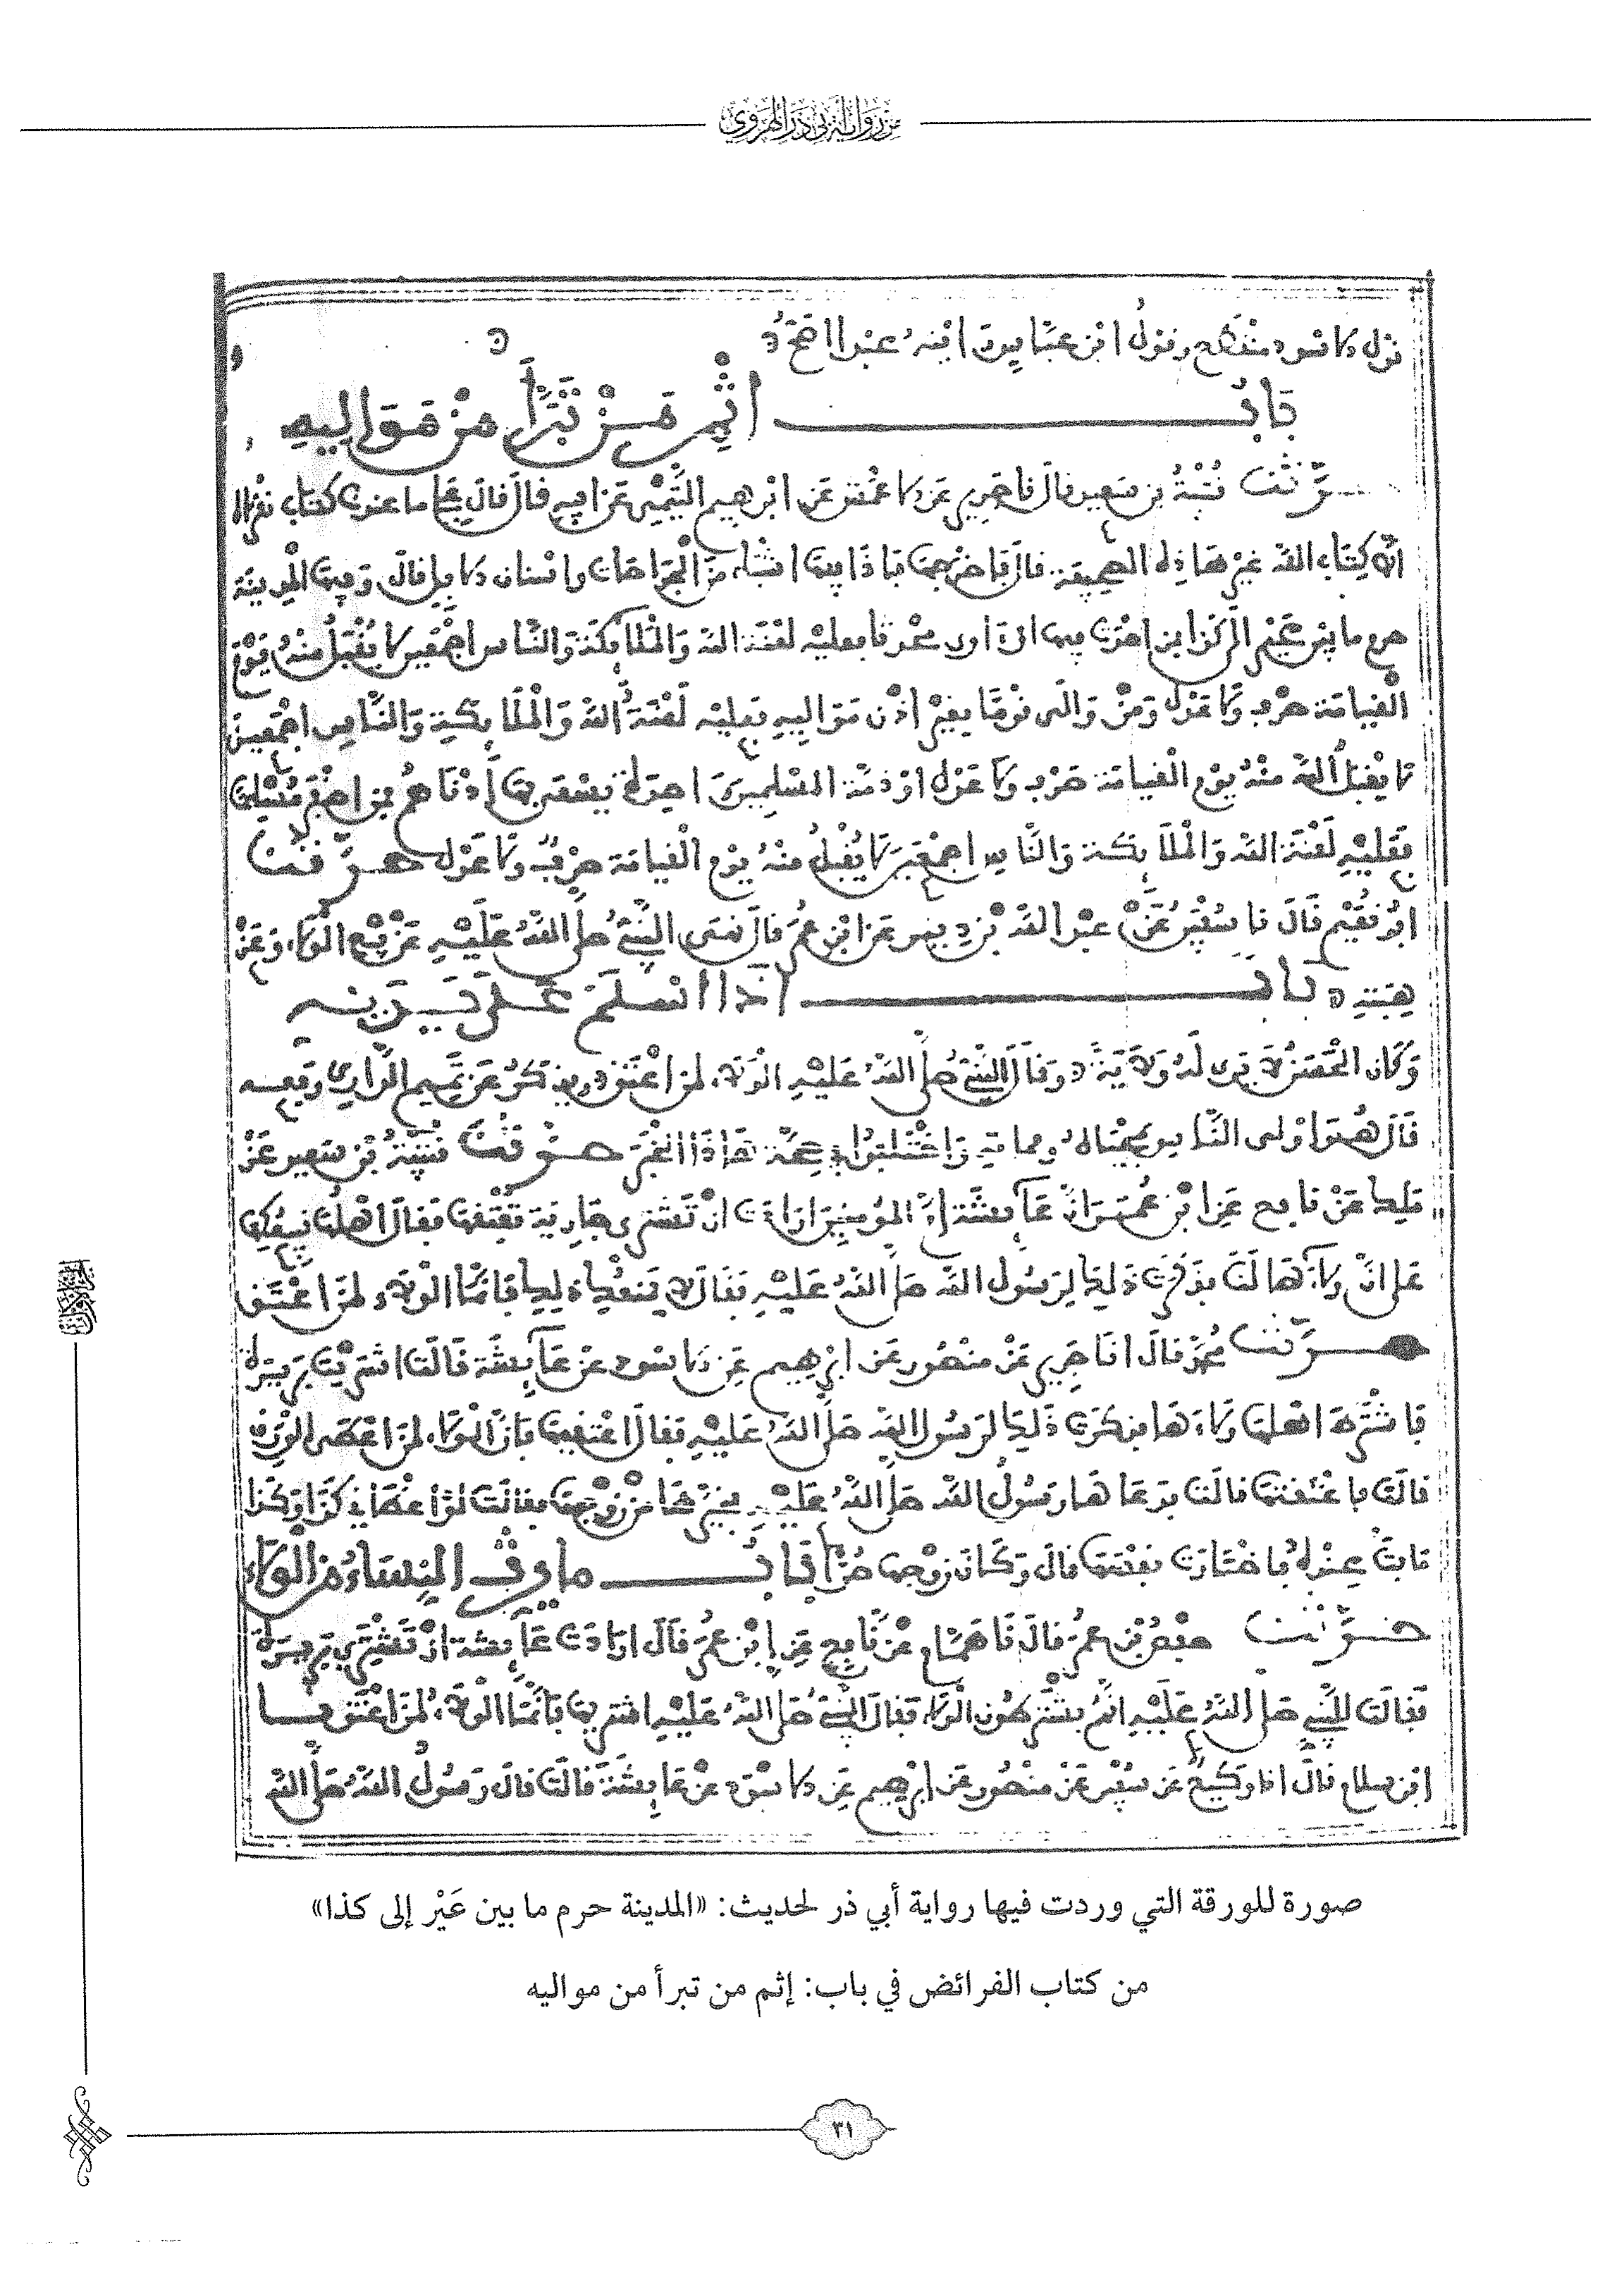 من رواية أبي ذر الهروي
قول الاسود منقطع وقول ابن عباس رايته عبدا اصح
باب اثم من تبرأ من مواليه
حدثنا قتيبة بن سعيد قال نا جرير عن الاعمش عن ابرهيم التيمي عن ابيه قال قال علي ما عندنا كتاب نقرأه
الا كتاب الله غير هاذه الصحيفة قال فاخرجها فاذا فيها اشياء من الجراحات واسنان الابل قال وفيها المدينة
حرم ما بين عير الى كذا من احدث فيها او اوى محدثا فعليه لعنة الله والملائكة والناس اجمعين لا يقبل منه يوم
القيامة صرف ولا عدل ومن والى قوما بغير اذن مواليه فعليه لعنة الله والملائكة والناس اجمعين
لا يقبل الله منه يوم القيامة صرف ولا عدل وذمة المسلمين واحدة يسعى بها أدناهم فمن اخفر مسلما
فعليه لعنة الله والملائكة والناس اجمعين لا يقبل منه يوم القيامة صرف ولا عدل حدثنا
ابو نعيم قال نا سفين عن عبد الله بن دينر عن ابن عمر قال نهى النبي صلى الله عليه عن بيع الولاء وعن
هبته باب اذا اسلم على يديه
وكان الحسن لا يرى له ولاية وقال النبي صلى الله عليه الولاء لمن اعتق ويذكر عن تميم الداري رفعه
قال هو اولى الناس بمحياه ومماته واختلفوا في صحة هاذا الخبر حدثنا قتيبة بن سعيد عن
ملك عن نافع عن ابن عمر ان عائشة ام المومنين ارادت ان تشتري جارية تعتقها فقال اهلها نبيعكها
على ان ولاءها لنا فذكرت ذلك لرسول الله صلى الله عليه فقال لا يمنعك ذلك فانما الولاء لمن اعتق
حدثنا محمد قال انا جرير عن منصور عن ابرهيم عن الاسود عن عائشة قالت اشتريت بريرة
فاشترط اهلها ولاءها فذكرت ذلك لرسول الله صلى الله عليه فقال اعتقيها فان الولاء لمن اعطى الورق
قالت فاعتقتها قالت فدعاها رسول الله صلى الله عليه فخيرها من زوجها فقالت لو اعطاني كذا وكذا
ما بت عنده فاختارت نفسها قال وكان زوجها حرا باب ما يرث النساء من الولاء
حدثنا حفص بن عمر قال نا همام عن نافع عن ابن عمر قال ارادت عائشة ان تشتري بريرة
فقالت للنبي صلى الله عليه انهم يشترطون الولاء فقال النبي صلى الله عليه اشتريها فانما الولاء لمن اعتق
ابن سلام قال انا وكيع عن سفين عن منصور عن ابرهيم عن الاسود عن عائشة قالت قال رسول الله صلى الله
صورة للورقة التي وردت فيها رواية أبي ذر لحديث: «المدينة حرم ما بين عَيْر إلى كذا»
من كتاب الفرائض في باب: إثم من تبرأ من مواليه
٣١